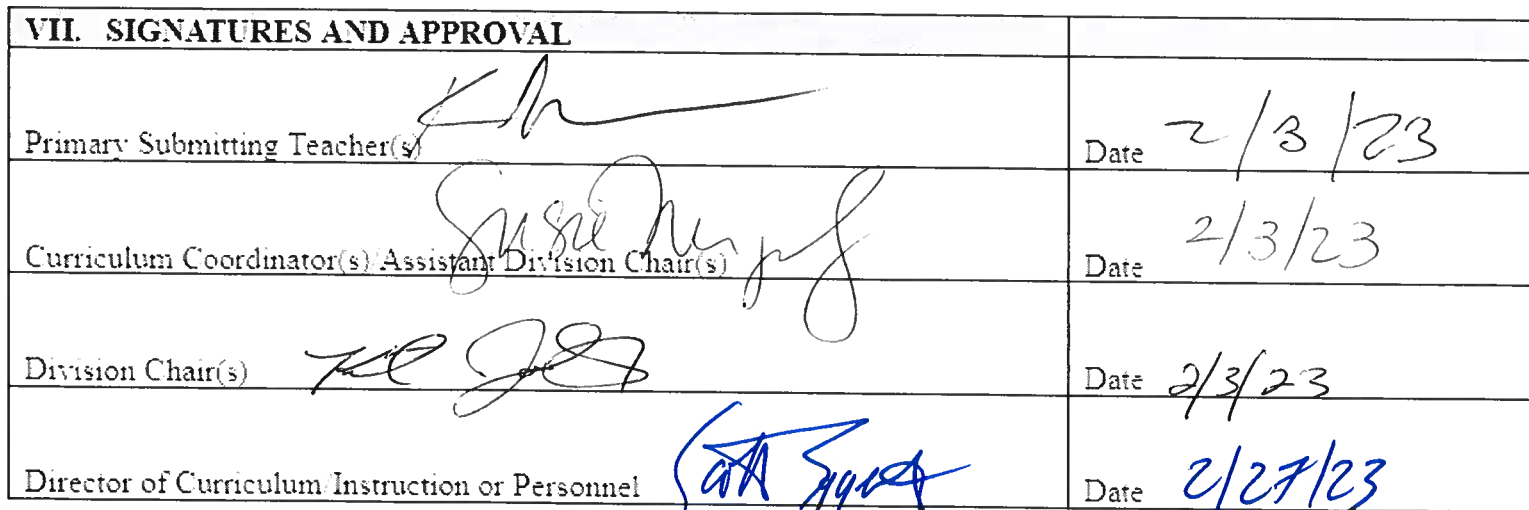 VII. SIGNATURES AND APPROVAL
Primary Submitting Teacher(s)
Date 2/3/23
Susie
Curriculum Coordinator(s)/Assistant Division Chair(s)
Date 2/3/23
Division Chair(s)
Date 2/3/23
Director of Curriculum/Instruction or Personnel Scott
Date 2/27/23